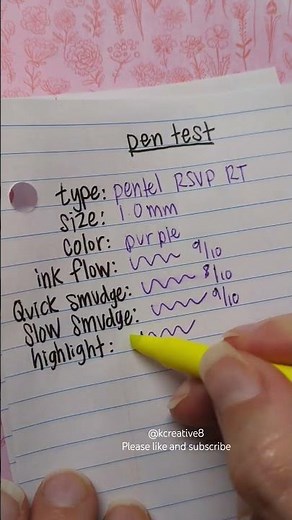 pen test
type: pentel RSVP RT
size: 1.0mm
color: purple
ink flow: 9/10
Quick smudge: 8/10
Slow smudge: 9/10
highlight:
@kcreative8
Please like and subscribe